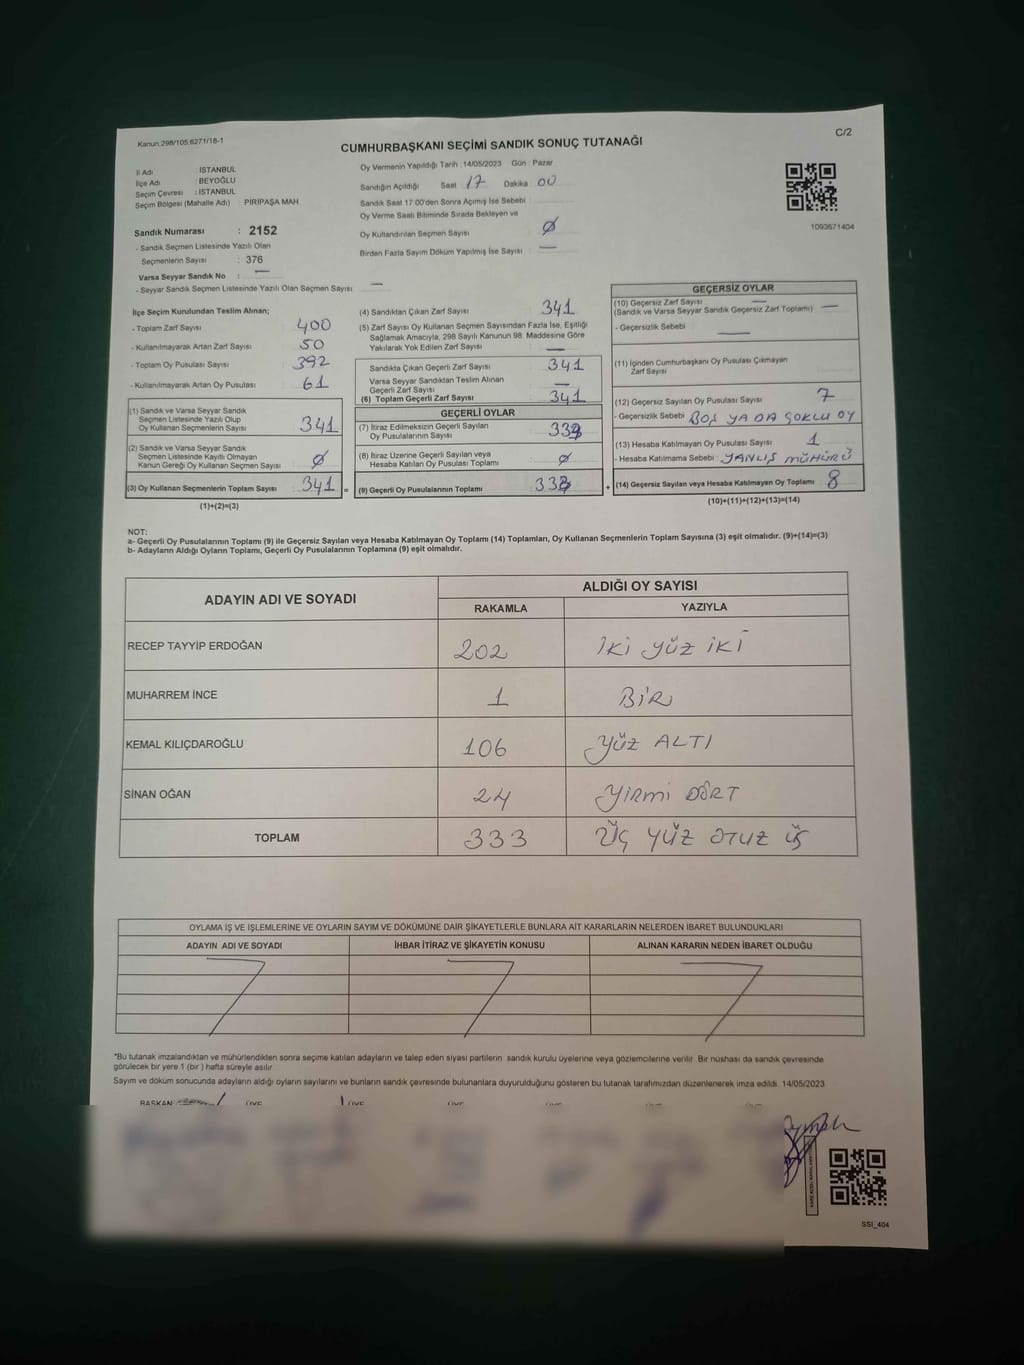 Kanun:298/105.6271/18-1
C/2
CUMHURBAŞKANI SEÇİMİ SANDIK SONUÇ TUTANAĞI
İl Adı : İSTANBUL
İlçe Adı : BEYOĞLU
Seçim Çevresi : İSTANBUL
Seçim Bölgesi (Mahalle Adı) : PİRİPAŞA MAH
Sandık Numarası : 2152
- Sandık Seçmen Listesinde Yazılı Olan
Seçmenlerin Sayısı : 376
Varsa Seyyar Sandık No : —
- Seyyar Sandık Seçmen Listesinde Yazılı Olan Seçmen Sayısı —
Oy Vermenin Yapıldığı Tarih : 14/05/2023 Gün : Pazar
Sandığın Açıldığı Saat 17 Dakika 00
Sandık Saat 17.00'den Sonra Açımış İse Sebebi
Oy Verme Saati Bitiminde Sırada Bekleyen ve
Oy Kullandırılan Seçmen Sayısı Ø
Birden Fazla Sayım Döküm Yapılmış İse Sayısı —
1093671404
İlçe Seçim Kurulundan Teslim Alınan;
- Toplam Zarf Sayısı 400
- Kullanılmayarak Artan Zarf Sayısı 50
- Toplam Oy Pusulası Sayısı 392
- Kullanılmayarak Artan Oy Pusulası 61
(1) Sandık ve Varsa Seyyar Sandık
Seçmen Listesinde Yazılı Olup
Oy Kullanan Seçmenlerin Sayısı 341
(2) Sandık ve Varsa Seyyar Sandık
Seçmen Listesinde Kayıtlı Olmayan
Kanun Gereği Oy Kullanan Seçmen Sayısı Ø
(3) Oy Kullanan Seçmenlerin Toplam Sayısı 341 =
(1)+(2)=(3)
(4) Sandıktan Çıkan Zarf Sayısı 341
(5) Zarf Sayısı Oy Kullanan Seçmen Sayısından Fazla İse, Eşitliği
Sağlamak Amacıyla, 298 Sayılı Kanunun 98. Maddesine Göre
Yakılarak Yok Edilen Zarf Sayısı —
Sandıkta Çıkan Geçerli Zarf Sayısı 341
Varsa Seyyar Sandıktan Teslim Alınan
Geçerli Zarf Sayısı —
(6) Toplam Geçerli Zarf Sayısı 341
GEÇERLİ OYLAR
(7) İtiraz Edilmeksizin Geçerli Sayılan
Oy Pusulalarının Sayısı 333
(8) İtiraz Üzerine Geçerli Sayılan veya
Hesaba Katılan Oy Pusulası Toplamı Ø
(9) Geçerli Oy Pusulalarının Toplamı 333 +
GEÇERSİZ OYLAR
(10) Geçersiz Zarf Sayısı —
(Sandık ve Varsa Seyyar Sandık Geçersiz Zarf Toplamı) —
- Geçersizlik Sebebi —
(11) İçinden Cumhurbaşkanı Oy Pusulası Çıkmayan
Zarf Sayısı
(12) Geçersiz Sayılan Oy Pusulası Sayısı 7
- Geçersizlik Sebebi BOŞ YA DA ÇOKLU OY
(13) Hesaba Katılmayan Oy Pusulası Sayısı 1
- Hesaba Katılmama Sebebi YANLIŞ MÜHÜRÜ
(14) Geçersiz Sayılan veya Hesaba Katılmayan Oy Toplamı 8
(10)+(11)+(12)+(13)=(14)
NOT:
a- Geçerli Oy Pusulalarının Toplamı (9) ile Geçersiz Sayılan veya Hesaba Katılmayan Oy Toplamı (14) Toplamları, Oy Kullanan Seçmenlerin Toplam Sayısına (3) eşit olmalıdır. (9)+(14)=(3)
b- Adayların Aldığı Oyların Toplamı, Geçerli Oy Pusulalarının Toplamına (9) eşit olmalıdır.
ADAYIN ADI VE SOYADI
ALDIĞI OY SAYISI
RAKAMLA YAZIYLA
RECEP TAYYİP ERDOĞAN 202 İKİ YÜZ İKİ
MUHARREM İNCE 1 BİR
KEMAL KILIÇDAROĞLU 106 YÜZ ALTI
SİNAN OĞAN 24 YİRMİ DÖRT
TOPLAM 333 ÜÇ YÜZ OTUZ ÜÇ
OYLAMA İŞ VE İŞLEMLERİNE VE OYLARIN SAYIM VE DÖKÜMÜNE DAİR ŞİKAYETLERLE BUNLARA AİT KARARLARIN NELERDEN İBARET BULUNDUKLARI
ADAYIN ADI VE SOYADI İHBAR İTİRAZ VE ŞİKAYETİN KONUSU ALINAN KARARIN NEDEN İBARET OLDUĞU
*Bu tutanak imzalandıktan ve mühürlendikten sonra seçime katılan adayların ve talep eden siyasi partilerin sandık kurulu üyelerine veya gözlemcilerine verilir. Bir nüshası da sandık çevresinde
görülecek bir yere 1 (bir) hafta süreyle asılır
Sayım ve döküm sonucunda adayların aldığı oyların sayılarını ve bunların sandık çevresinde bulunanlara duyurulduğunu gösteren bu tutanak tarafımızdan düzenlenerek imza edildi. 14/05/2023
BAŞKAN ÜYE ÜYE ÜYE
SSI_404